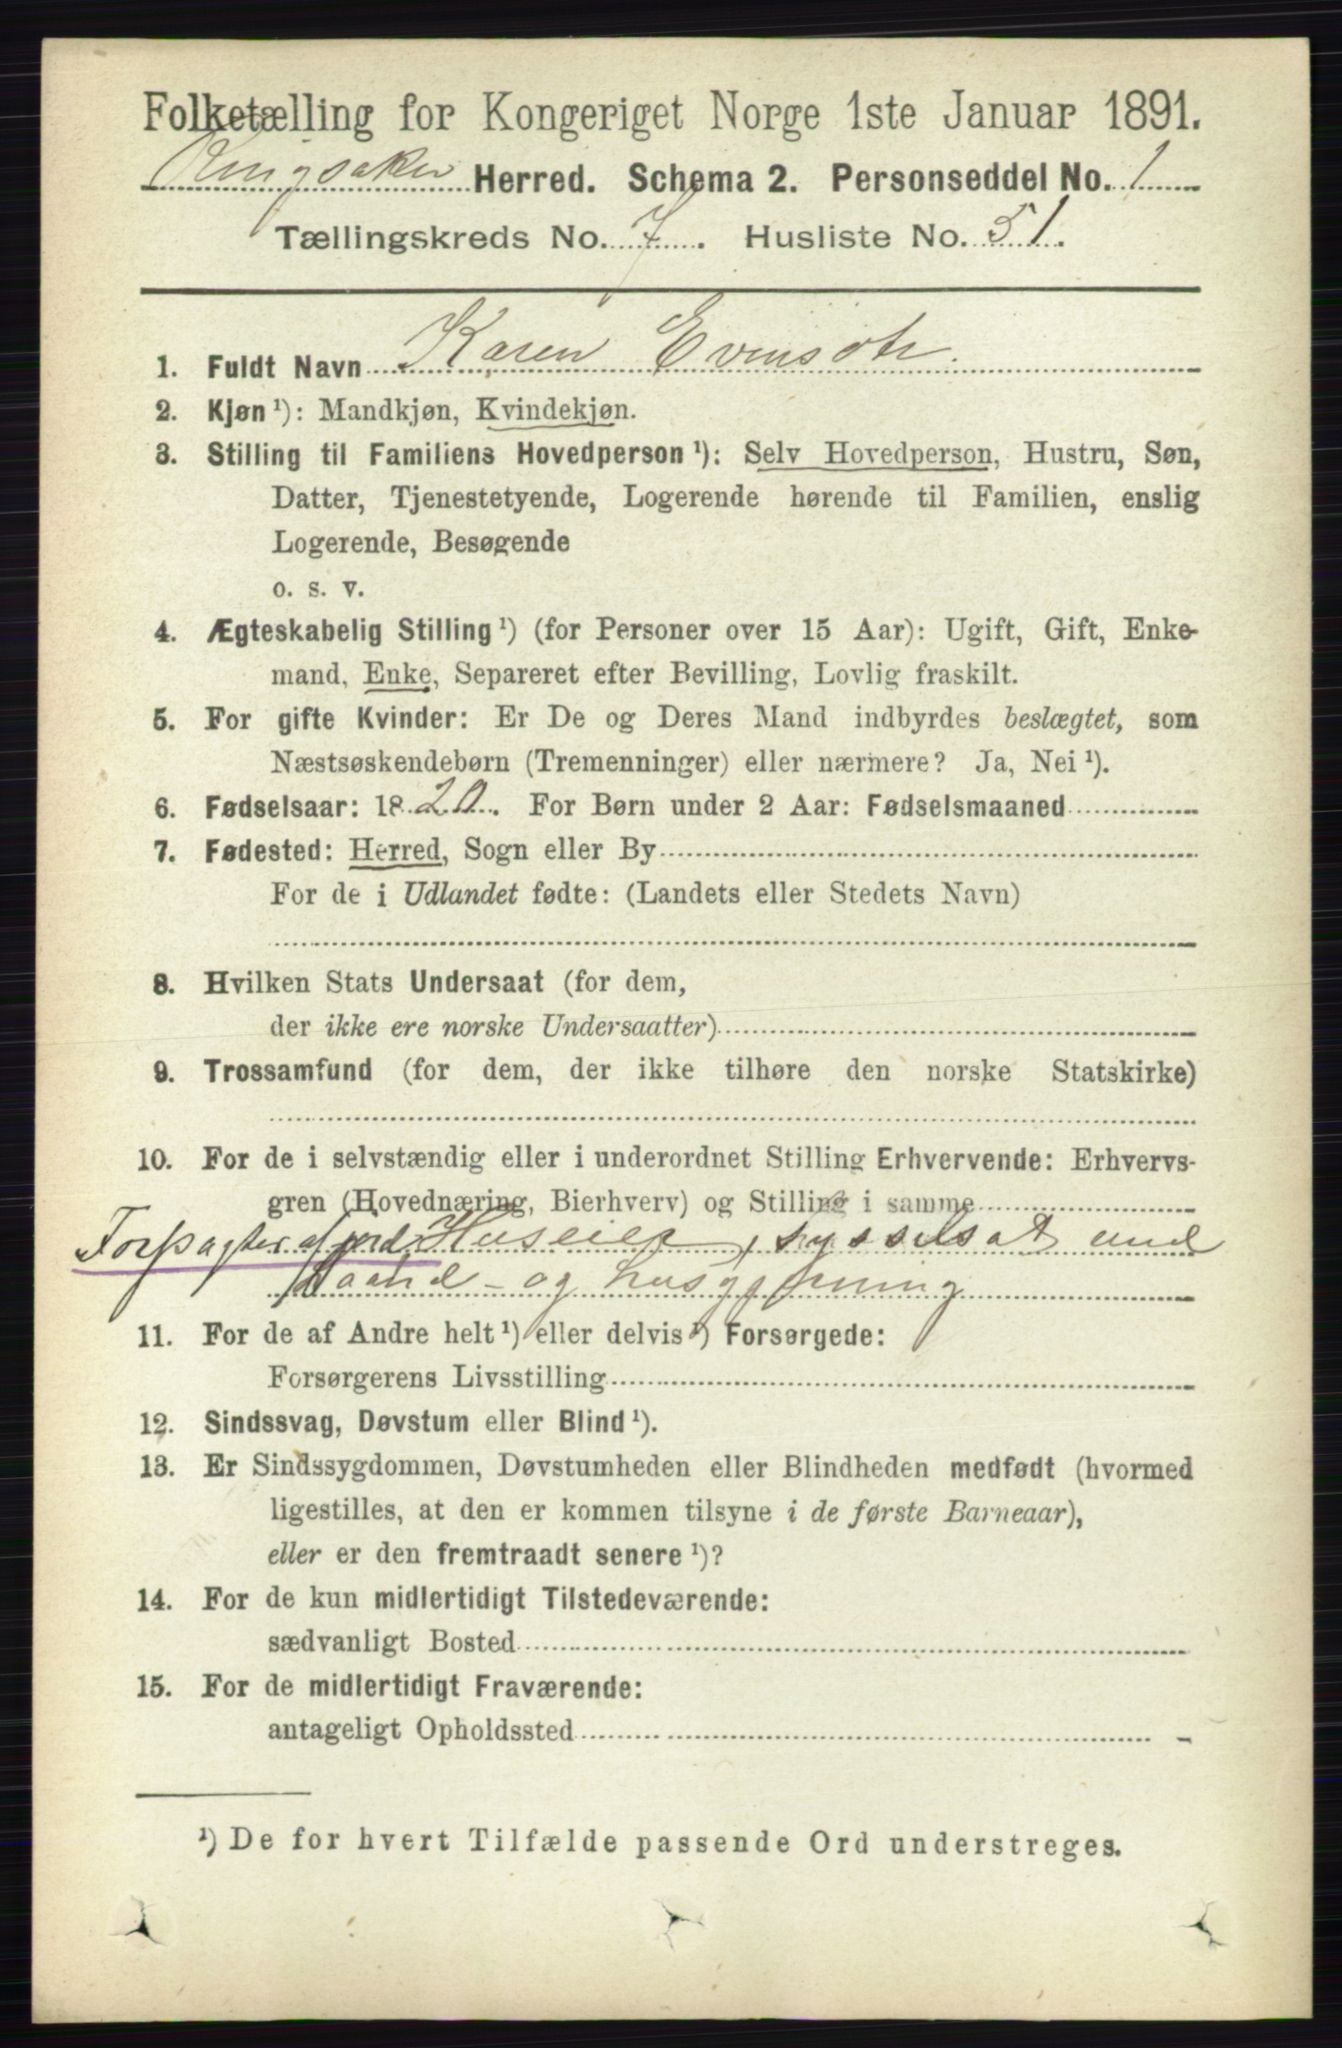 Folketælling for Kongeriget Norge 1ste Januar 1891.
Ringsaker Herred. Schema 2. Personseddel No. 1
Tællingskreds No. 7. Husliste No. 51.
1. Fuldt Navn Karen Evensdtr.
2. Kjøn ¹): Mandkjøn, Kvindekjøn.
3. Stilling til Familiens Hovedperson ¹): Selv Hovedperson, Hustru, Søn,
Datter, Tjenestetyende, Logerende hørende til Familien, enslig
Logerende, Besøgende
o. s. v.
4. Ægteskabelig Stilling ¹) (for Personer over 15 Aar): Ugift, Gift, Enke-
mand, Enke, Separeret efter Bevilling, Lovlig fraskilt.
5. For gifte Kvinder: Er De og Deres Mand indbyrdes beslægtet, som
Næstsøskendebørn (Tremenninger) eller nærmere? Ja, Nei ¹).
6. Fødselsaar: 1820. For Børn under 2 Aar: Fødselsmaaned
7. Fødested: Herred, Sogn eller By
For de i Udlandet fødte: (Landets eller Stedets Navn)
8. Hvilken Stats Undersaat (for dem,
der ikke ere norske Undersaatter)
9. Trossamfund (for dem, der ikke tilhøre den norske Statskirke)
10. For de i selvstændig eller i underordnet Stilling Erhvervende: Erhvervs-
gren (Hovednæring, Bierhverv) og Stilling i samme
Forpagter af jord Huseier, sysselsat med
haand- og husgjerning
11. For de af Andre helt ¹) eller delvis ¹) Forsørgede:
Forsørgerens Livsstilling
12. Sindssvag, Døvstum eller Blind ¹).
13. Er Sindssygdommen, Døvstumheden eller Blindheden medfødt (hvormed
ligestilles, at den er kommen tilsyne i de første Barneaar),
eller er den fremtraadt senere ¹)?
14. For de kun midlertidigt Tilstedeværende:
sædvanligt Bosted
15. For de midlertidigt Fraværende:
antageligt Opholdssted
¹) De for hvert Tilfælde passende Ord understreges.